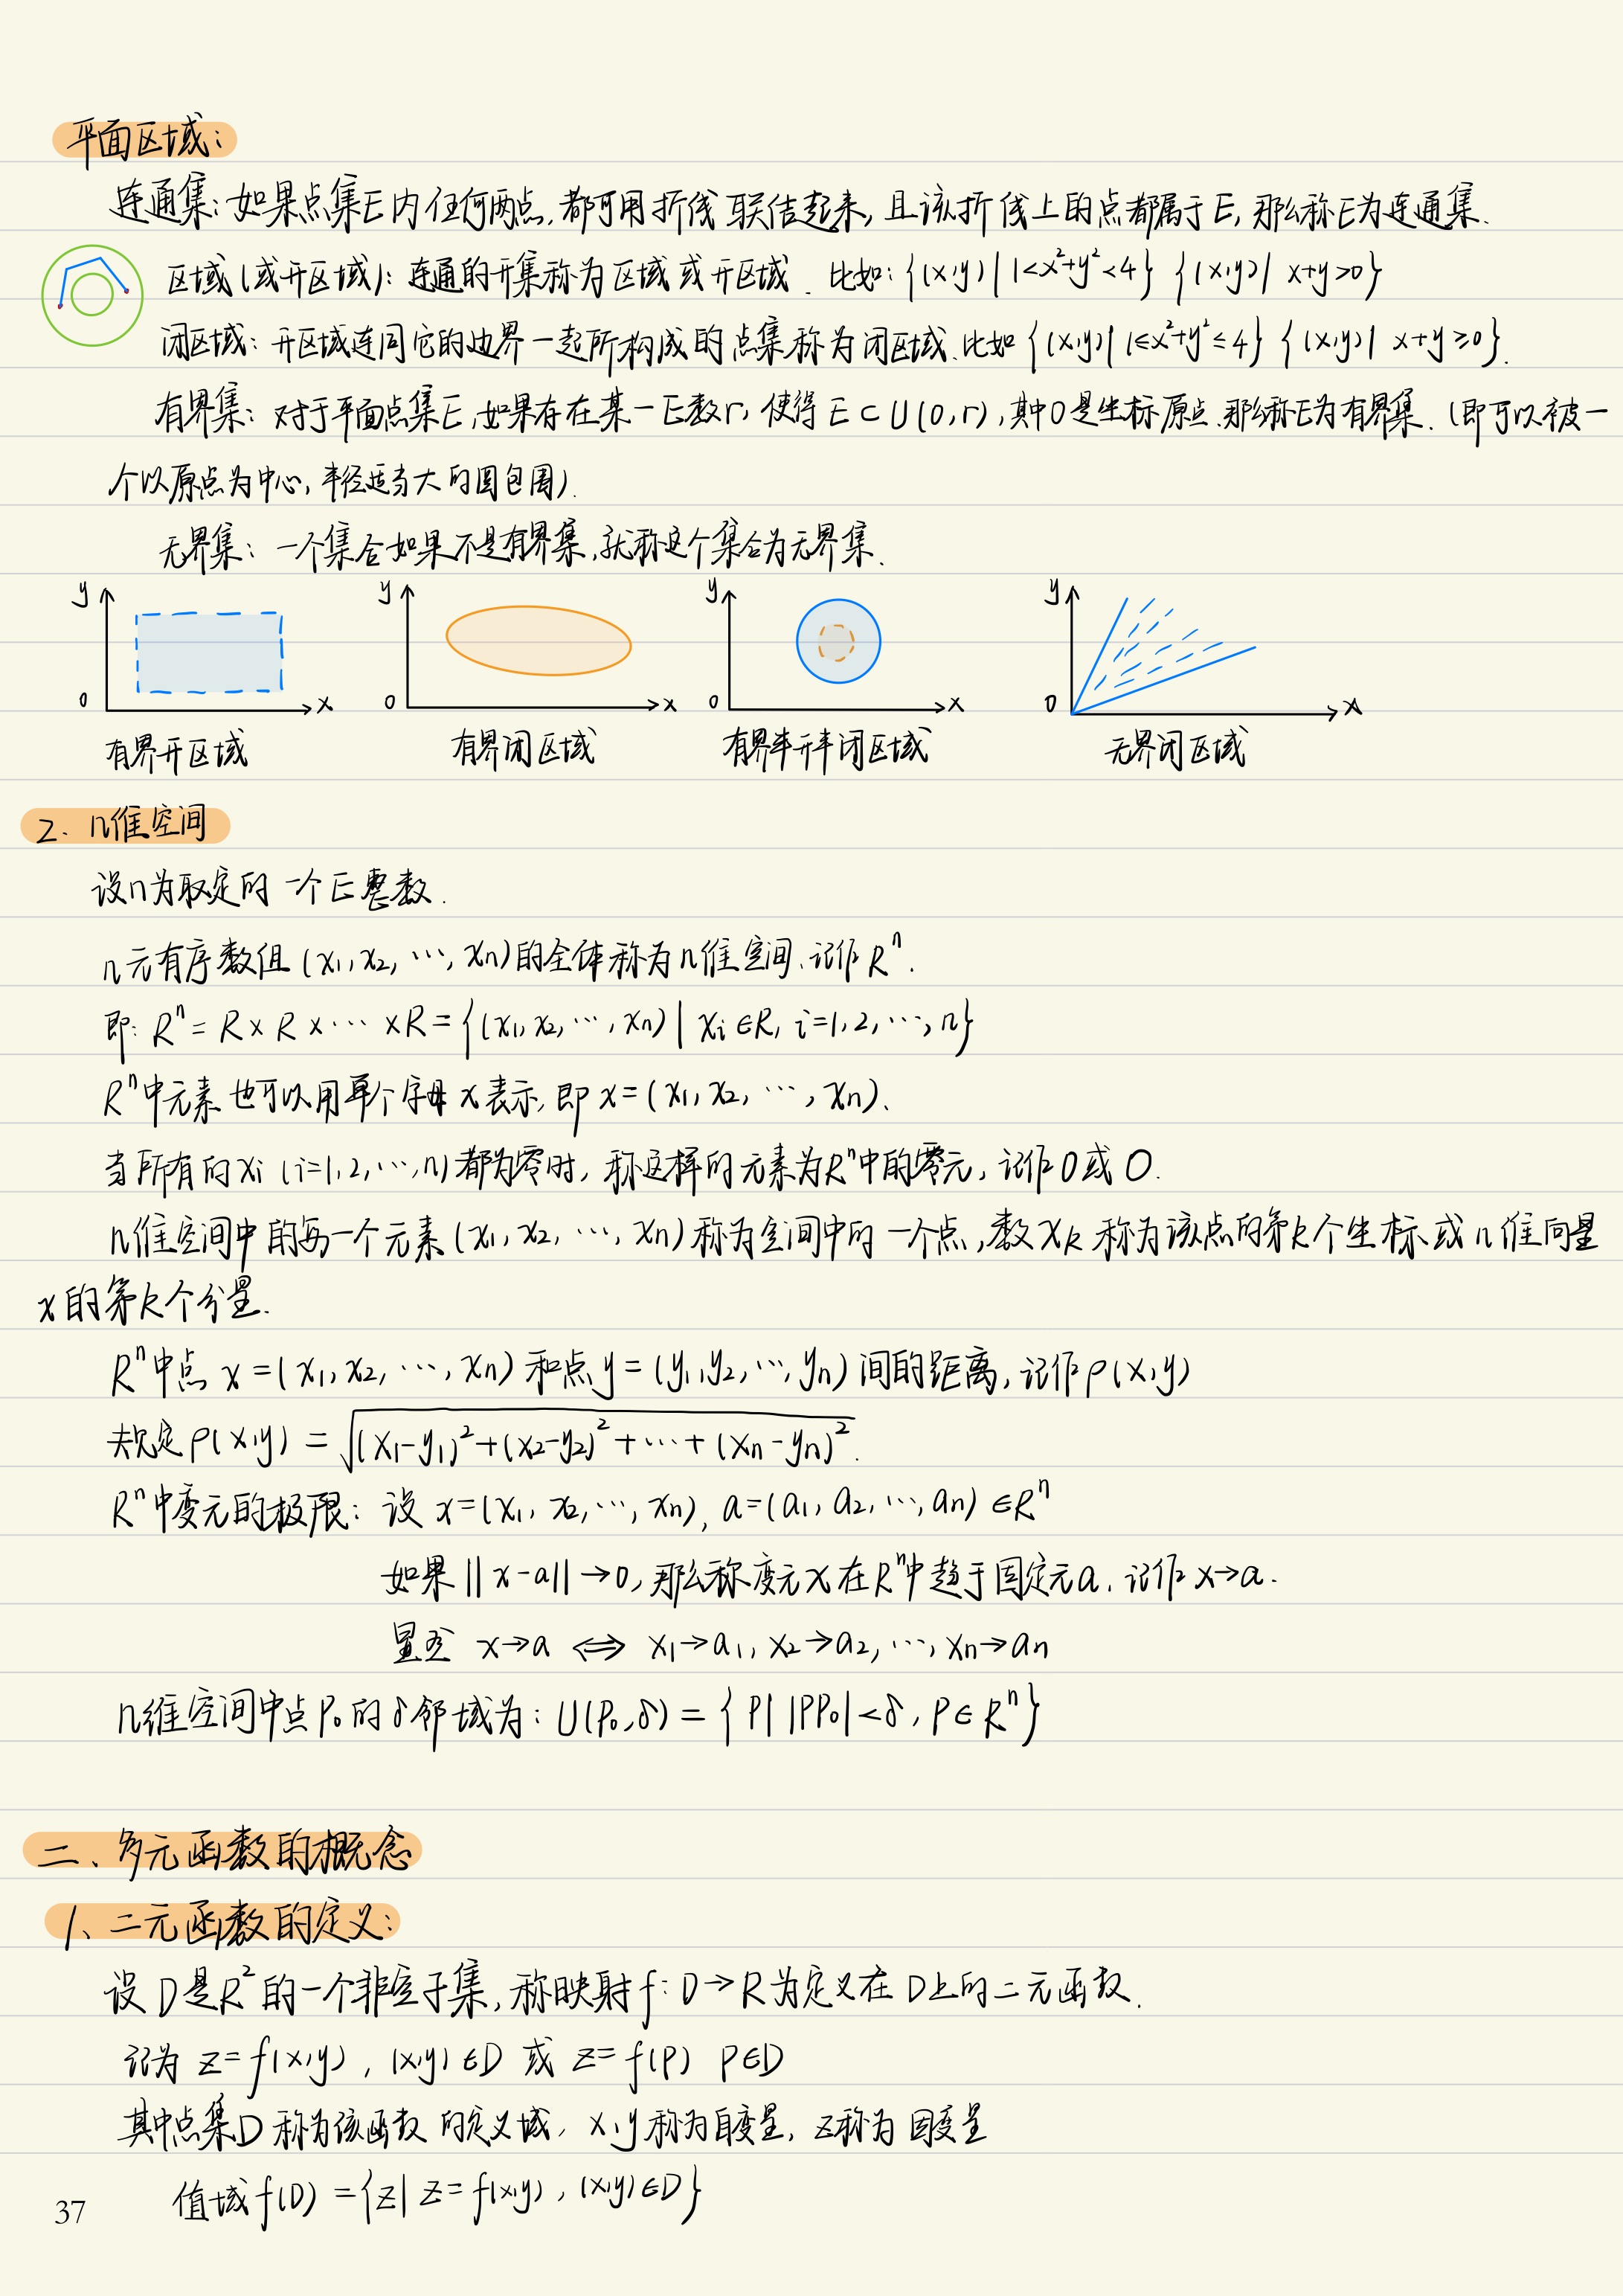 平面区域：
连通集：如果点集E内任何两点，都可用折线联结起来，且该折线上的点都属于E，那么称E为连通集．
区域（或开区域）：连通的开集称为区域或开区域．比如：{(x,y)| 1<x²+y²<4} {(x,y)| x+y>0}
闭区域：开区域连同它的边界一起所构成的点集称为闭区域．比如 {(x,y)| 1≤x²+y²≤4} {(x,y)| x+y≥0}．
有界集：对于平面点集E，如果存在某一正数r，使得 E⊂U(O,r)，其中O是坐标原点．那么称E为有界集．（即可以被一
个以原点为中心，半径适当大的圆包围）．
无界集：一个集合如果不是有界集，就称这个集合为无界集．
y 0 x y 0 x y 0 x y 0 x
有界开区域 有界闭区域 有界半开半闭区域 无界闭区域
2. n维空间
设n为取定的一个正整数．
n元有序数组 (x₁,x₂,⋯,xₙ)的全体称为n维空间，记作 Rⁿ．
即：Rⁿ=R×R×⋯×R={(x₁,x₂,⋯,xₙ)| xᵢ∈R, i=1,2,⋯,n}
Rⁿ中元素也可以用单个字母x表示，即 x=(x₁,x₂,⋯,xₙ)．
当所有的xᵢ (i=1,2,⋯,n)都为零时，称这样的元素为Rⁿ中的零元，记作0或O．
n维空间中的每一个元素(x₁,x₂,⋯,xₙ)称为空间中的一个点，数xₖ称为该点的第k个坐标或n维向量
x的第k个分量．
Rⁿ中点 x=(x₁,x₂,⋯,xₙ)和点y=(y₁,y₂,⋯,yₙ)间的距离，记作ρ(x,y)
规定ρ(x,y)=√((x₁-y₁)²+(x₂-y₂)²+⋯+(xₙ-yₙ)²)．
Rⁿ中变元的极限：设 x=(x₁,x₂,⋯,xₙ), a=(a₁,a₂,⋯,aₙ)∈Rⁿ
如果||x-a||→0，那么称变元x在Rⁿ中趋于固定元a，记作x→a．
显然 x→a ⇔ x₁→a₁, x₂→a₂,⋯, xₙ→aₙ
n维空间中点P₀的δ邻域为：U(P₀,δ)={P| |PP₀|<δ, P∈Rⁿ}
二、多元函数的概念
1、二元函数的定义：
设D是R²的一个非空子集，称映射f:D→R为定义在D上的二元函数．
记为 z=f(x,y), (x,y)∈D 或 z=f(P) P∈D
其中点集D称为该函数的定义域，x,y称为自变量，z称为因变量
值域f(D)={z| z=f(x,y), (x,y)∈D}
37